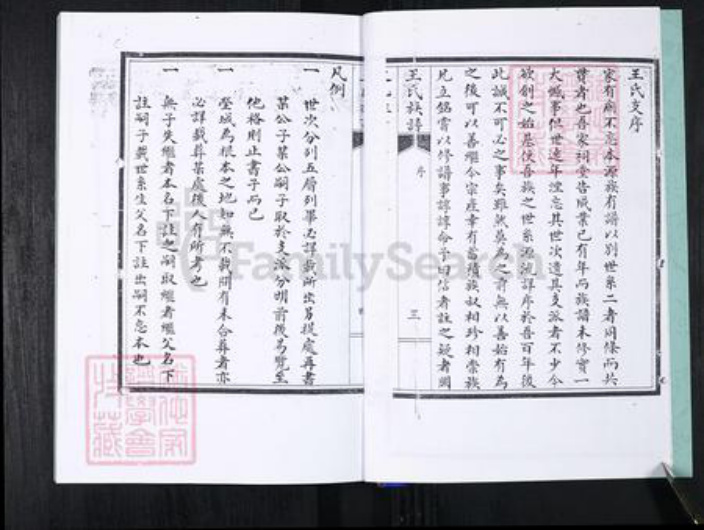 王氏支序
家有廟不忘本源族有譜以別世系二者同條而共
尊者也吾家祠堂告成業已有年而族譜未修實一
大憾事似世遠年湮忘其世次遺其支派者不少今
欲創之始基使吾族之世系源流詳序於吾百年後
此誠不可必之事矣雖然莫為之前無以善始有為
之後可以善繼今宗座幸有富積族叔相珍相崇族
兄立銘嘗以修譜事諄諄命予曰信者註之疑者闕
王氏族譜
序
三
凡例
一 世次分列五層列畢必詳載所出另提處再書
某公子某公嗣子取於支派分明前後易覽至
他格則止書子而已
一 塋域為根本之地如無不載間有未合葬者亦
必詳載葬某處後人有所考也
一 無子失繼者本名下註之嗣取繼者繼父名下
註嗣子茲世系生父名下註出嗣不忘本也
FamilySearch